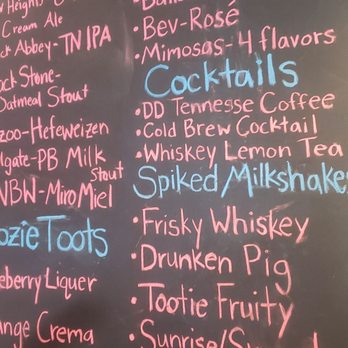 Heights
Cream Ale
Abbey-TN IPA
Stone-
Oatmeal Stout
zoo-Hefeweizen
lgate-PB Milk
Stout
NBN-Miro Miel
ozie Toots
eberry Liquer
ange Crema
•Bev-Rosé
•Mimosas-4 flavors
Cocktails
•DD Tennesse Coffee
•Cold Brew Cocktail
•Whiskey Lemon Tea
Spiked Milkshake
•Frisky Whiskey
•Drunken Pig
•Tootie Fruity
•Sunrise/